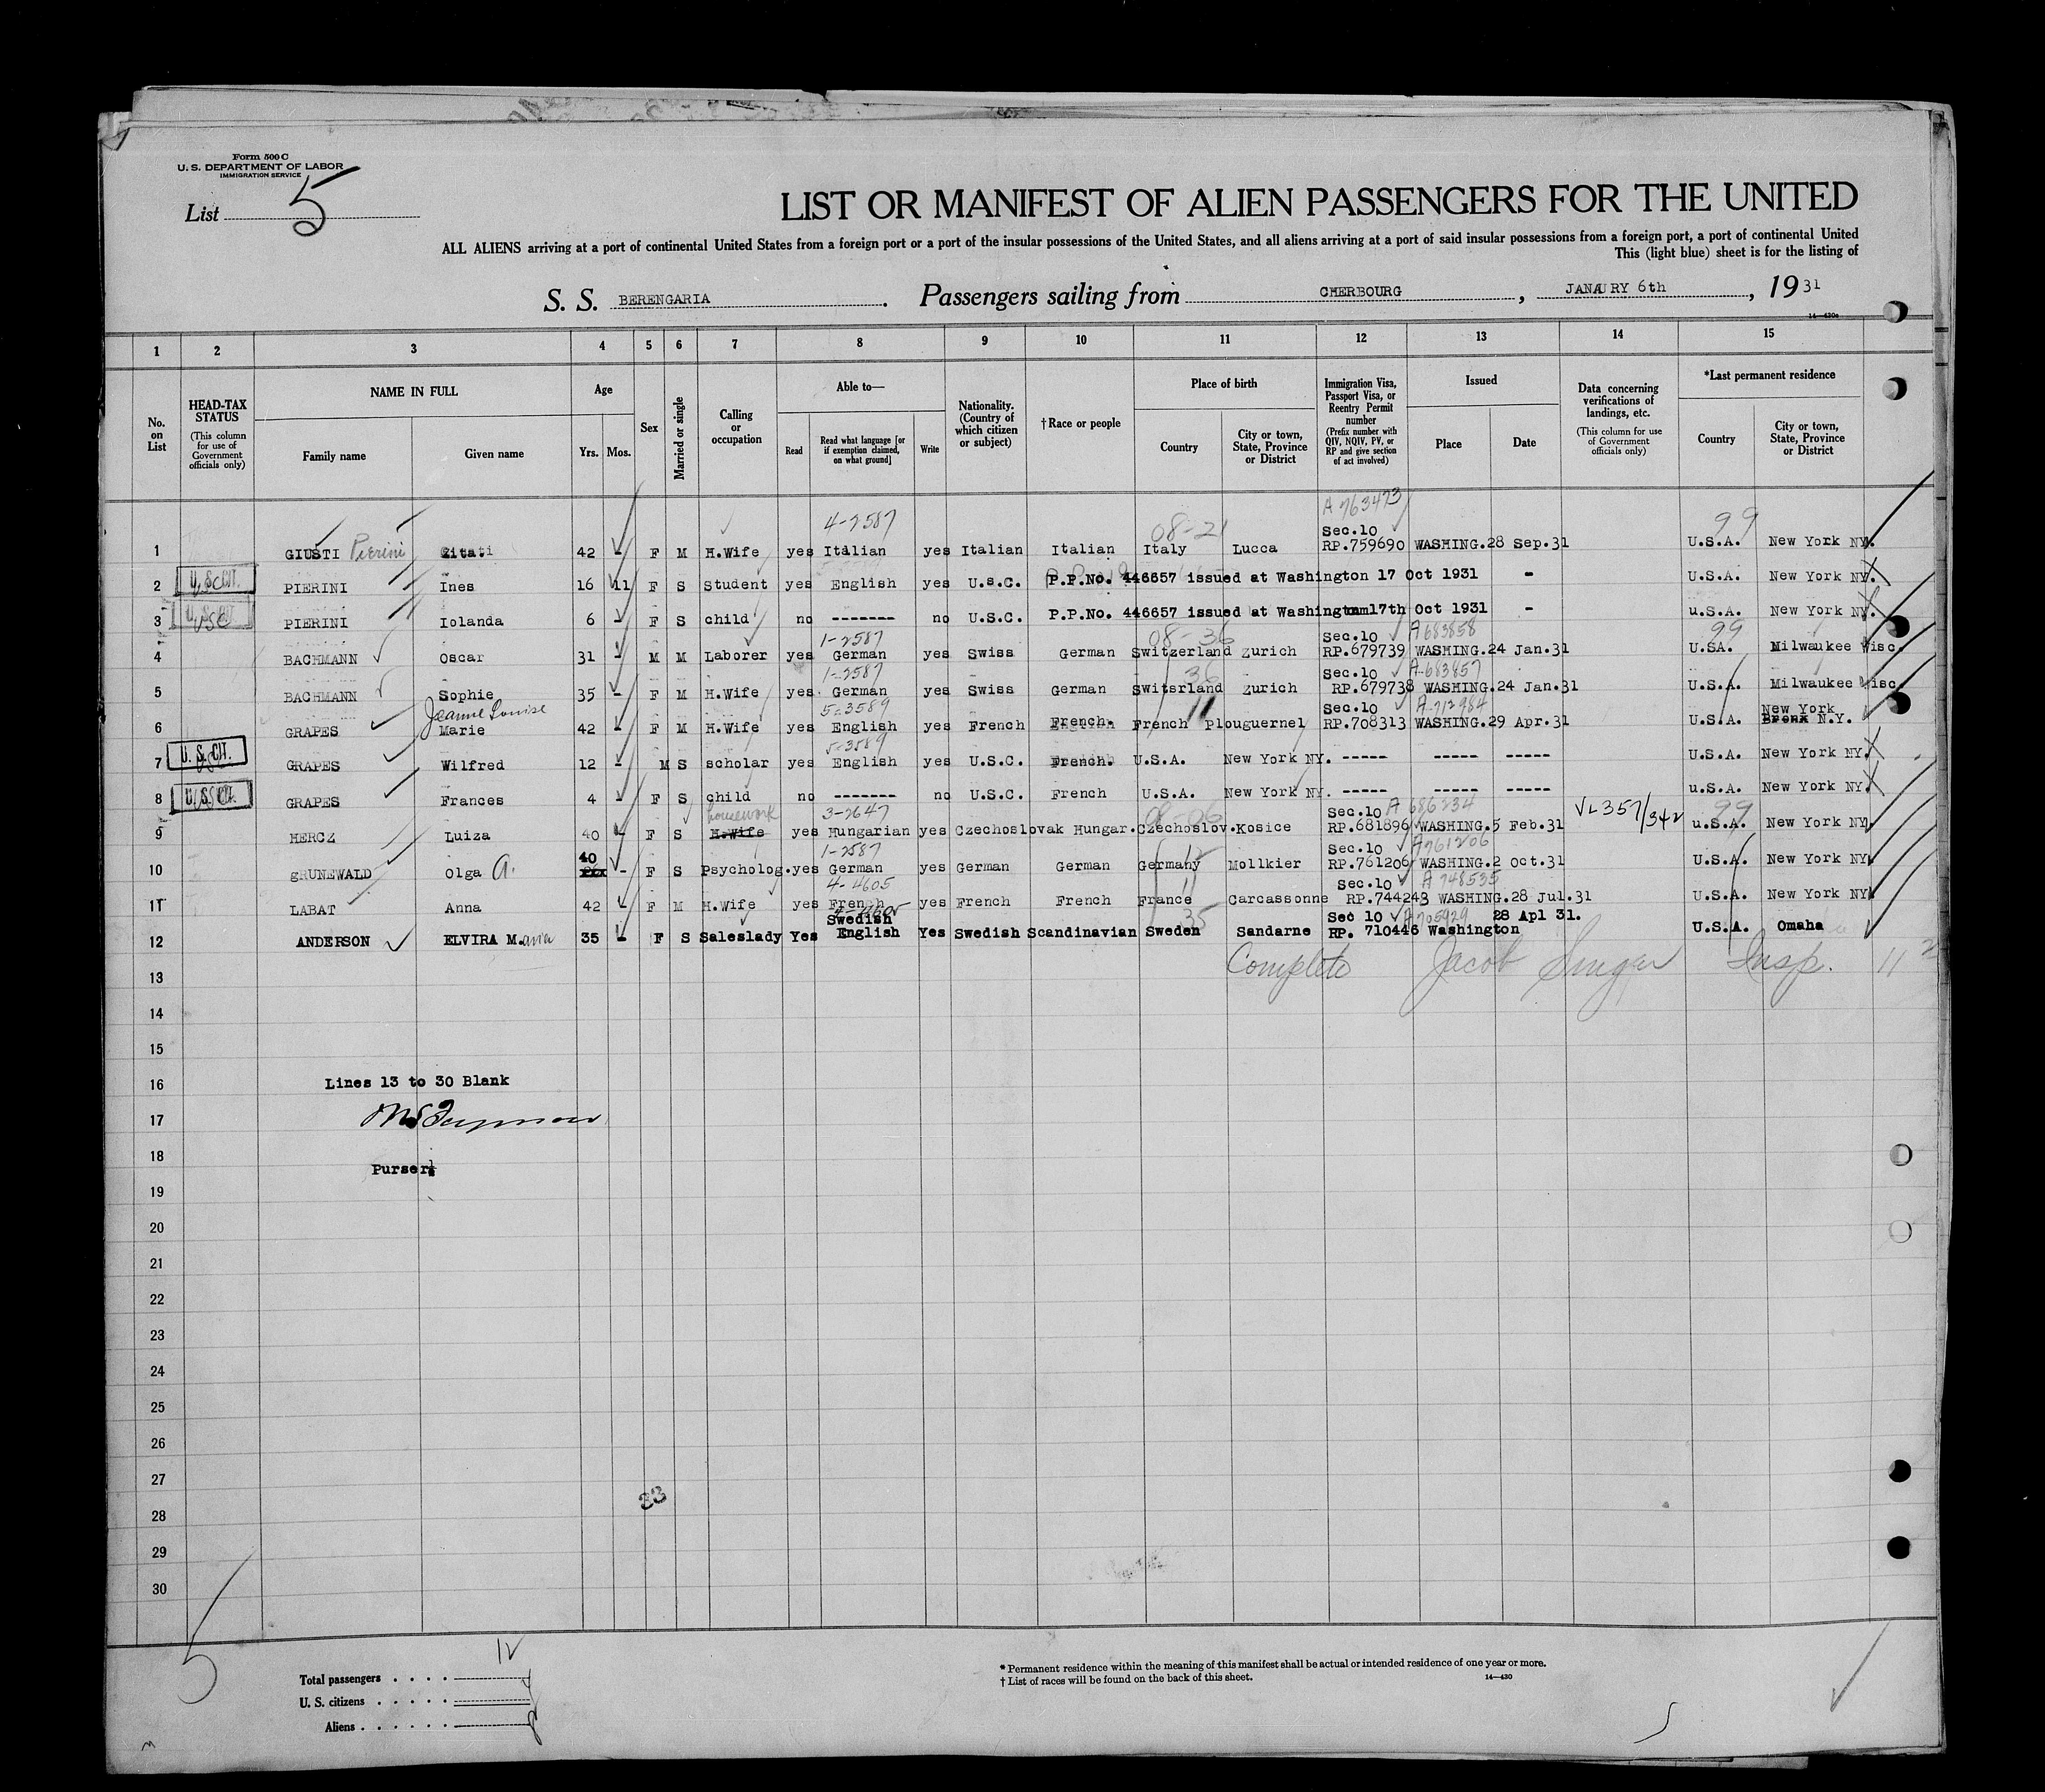 Form 500 C
U. S. DEPARTMENT OF LABOR
IMMIGRATION SERVICE
List 5
LIST OR MANIFEST OF ALIEN PASSENGERS FOR THE UNITED
ALL ALIENS arriving at a port of continental United States from a foreign port or a port of the insular possessions of the United States, and all aliens arriving at a port of said insular possessions from a foreign port, a port of continental United
This (light blue) sheet is for the listing of
S. S. BERENGARIA . Passengers sailing from CHERBOURG , JANAURY 6th , 1931
14—430a
1 2 3 4 5 6 7 8 9 10 11 12 13 14 15
No. on List
HEAD-TAX STATUS (This column for use of Government officials only)
NAME IN FULL Family name Given name
Age Yrs. Mos.
Sex
Married or single
Calling or occupation
Able to— Read Read what language [or if exemption claimed, on what ground] Write
Nationality. (Country of which citizen or subject)
†Race or people
Place of birth Country City or town, State, Province or District
Immigration Visa, Passport Visa, or Reentry Permit number (Prefix number with QIV, NQIV, PV, or RP and give section of act involved)
Issued Place Date
Data concerning verifications of landings, etc. (This column for use of Government officials only)
*Last permanent residence Country City or town, State, Province or District
4-2587 08-21 A 763473 99
Sec.10
1 GIUSTI Pierini Zita 42 - F M H.Wife yes Italian yes Italian Italian Italy Lucca RP.759690 WASHING. 28 Sep.31 U.S.A. New York NY.
2 U.S. CIT. PIERINI Ines 16 11 F S Student yes English yes U.S.C. P.P.No. 446657 issued at Washington 17 Oct 1931 - U.S.A. New York NY.
3 U.S. CIT. USC PIERINI Iolanda 6 - F S child no ------- no U.S.C. P.P.No. 446657 issued at Washington 17th Oct 1931 - u.S.A. New York NY.
1-2587 08-36 Sec.10 A 683858 99
4 BACHMANN Oscar 31 - M M Laborer yes German yes Swiss German Switzerland Zurich RP.679739 WASHING. 24 Jan.31 U.SA. Milwaukee Wisc.
1-2587 36 Sec.10 A-683857
5 BACHMANN Sophie 35 - F M H.Wife yes German yes Swiss German Switserland Zurich RP.679738 WASHING. 24 Jan.31 U.S.A. Milwaukee Wisc.
Jeanne Louise 5-3589 11 Sec.10 A-712984 New York
6 GRAPES Marie 42 - F M H.Wife yes English yes French French. French Plouguernel RP.708313 WASHING. 29 Apr.31 U.S.A. Bronx N.Y.
5-3589
7 U. S. CIT. GRAPES Wilfred 12 - M S scholar yes English yes U.S.C. French. U.S.A. New York NY. ----- ----- ----- U.S.A. New York NY.
8 U. S. CIT. GRAPES Frances 4 - F S child no ------- no U.S.C. French U.S.A. New York NY. ----- ----- ----- u.S.A. New York NY.
homework 3-2647 08-06 Sec.10 A 686234 VL 357/342 99
9 HERCZ Luiza 40 - F S H.Wife yes Hungarian yes Czechoslovak Hungar. Czechoslov. Kosice RP.681896 WASHING. 5 Feb.31 u.S.A. New York NY
40 1-2587 12 Sec.10 A761206
10 gRUNEWALD Olga A. - F S Psycholog. yes German yes German German Germany Mollkier RP.761206 WASHING. 2 Oct.31 U.S.A. New York NY
4-4605 11 Sec.10 A 748535
11 LABAT Anna 42 - F M H.Wife yes French yes French French France Carcassonne RP.744243 WASHING. 28 Jul.31 U.S.A. New York NY
Swedish 35 Sec 10 A705929 28 Apl 31.
12 ANDERSON ELVIRA M.aria 35 - F S Saleslady Yes English Yes Swedish Scandinavian Sweden Sandarne RP. 710446 Washington U.S.A. Omaha
Complete Jacob Singer Insp. 11
13
14
15
16 Lines 13 to 30 Blank
17
18
Purser
19
20
21
22
23
24
25
26
27
28
29
30
33
5
Total passengers . . . . 12
U. S. citizens . . . . . 4
Aliens . . . . . . 8
* Permanent residence within the meaning of this manifest shall be actual or intended residence of one year or more.
† List of races will be found on the back of this sheet.
14—430